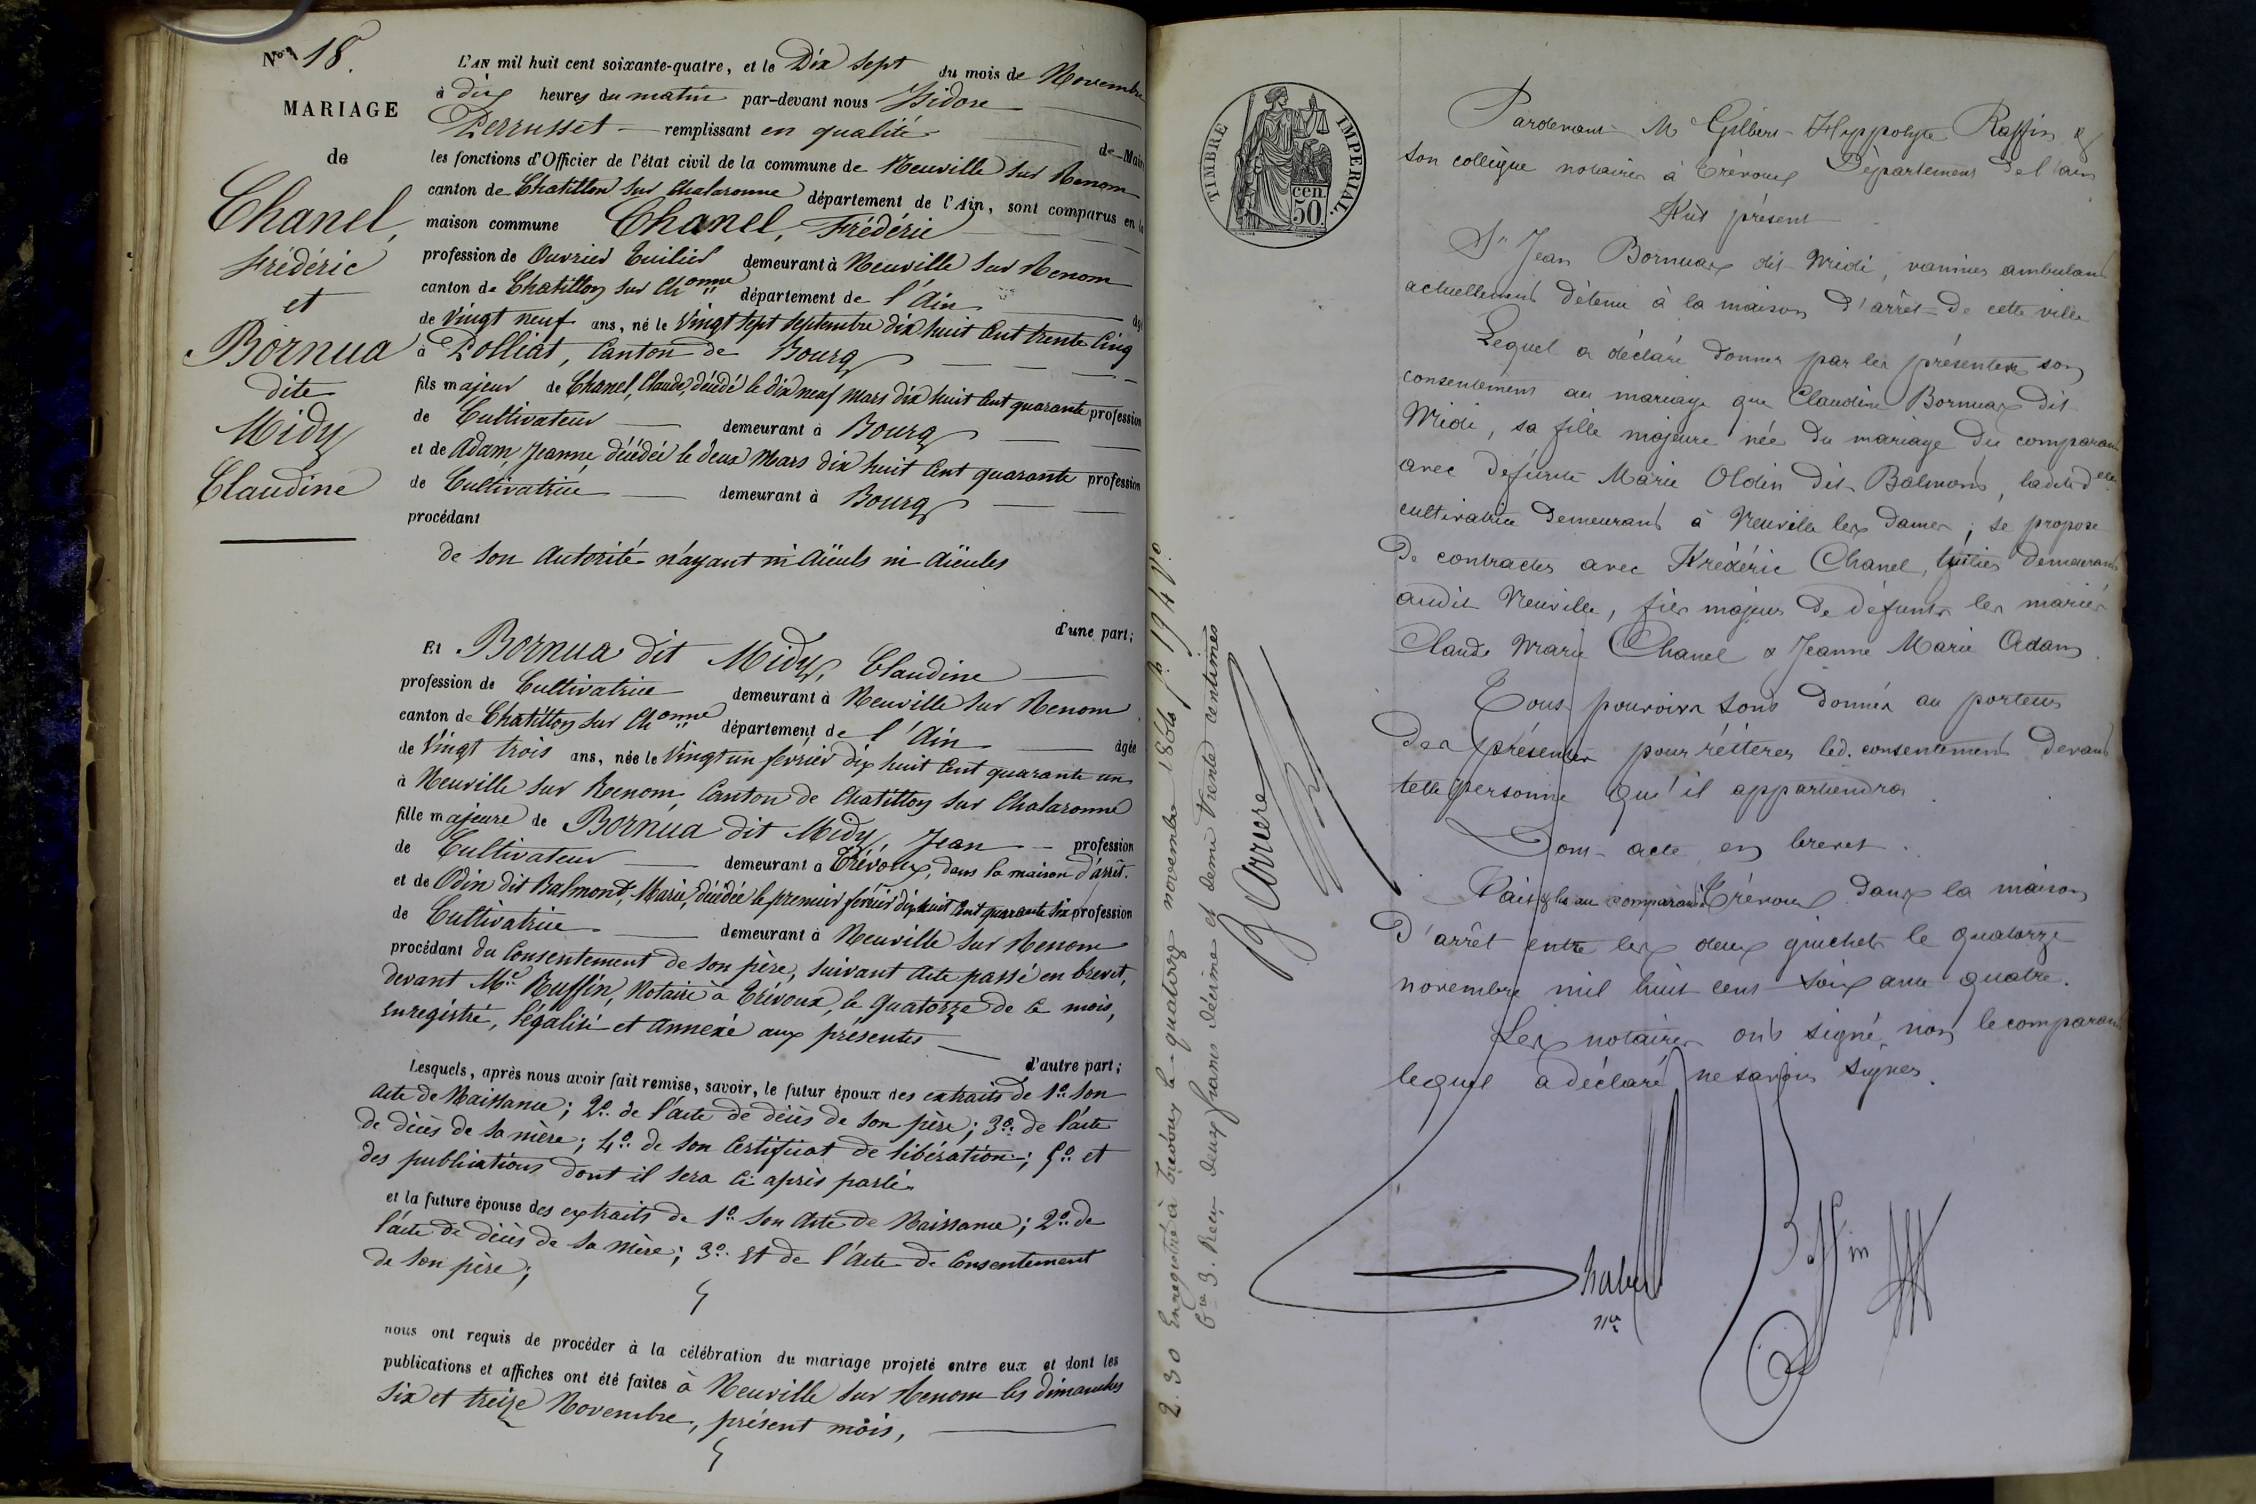 N° 18.
MARIAGE
de
Chanel,
Frédéric
et
Bornua
dite
Midy
Claudine
L'AN mil huit cent soixante-quatre, et le Dix sept du mois de Novembre
à dix heures du matin par-devant nous Isidore
Perrusset remplissant en qualité de Maire
les fonctions d'Officier de l'état civil de la commune de Neuville sur Renom
canton de Chatillon sur Chalaronne département de l'Ain, sont comparus en la
maison commune Chanel, Frédéric
profession de Ouvrier Tuilier demeurant à Neuville sur Renom
canton de Chatillon sur Chonne département de l'Ain âgé
de Vingt neuf ans, né le Vingt sept septembre dix huit Cent trente Cinq
à Polliat, Canton de Bourg
fils majeur de Chanel, Claude, décédé le dix neuf Mars dix huit Cent quarante profession
de Cultivateur demeurant à Bourg
et de Adam Jeanne décédée le deux Mars dix huit Cent quarante profession
de Cultivatrice demeurant à Bourg
procédant
de son Autorité n'ayant ni Aïeuls ni Aïeules
d'une part;
Et Bornua dit Midy, Claudine
profession de Cultivatrice demeurant à Neuville sur Renom
canton de Chatillon sur Chonne département de l'Ain âgée
de Vingt trois ans, née le Vingt un février dix huit Cent quarante un
à Neuville sur Renom, Canton de Chatillon sur Chalaronne
fille majeure de Bornua dit Midy, Jean profession
de Cultivateur demeurant à Trévoux, dans la maison d'arrêt.
et de Odin dit Balmont, Marie, décédée le premier février dix huit Cent quarante six profession
de Cultivatrice demeurant à Neuville sur Renom
procédant du Consentement de son père, suivant Acte passé en brevet,
devant Me Ruffin, Notaire à Trévoux, le quatorze de ce mois,
enregistré, légalisé et annexé aux présentes
d'autre part;
Lesquels, après nous avoir fait remise, savoir, le futur époux des extraits de 1° son
Acte de Naissance; 2° de l'acte de décès de son père; 3° de l'acte
de décès de sa mère; 4° de son Certificat de libération; 5° et
des publications dont il sera ci après parlé.
et la future épouse des extraits de 1° son Acte de Naissance; 2° de
l'acte de décès de sa Mère; 3° Et de l'Acte de Consentement
de son père;
nous ont requis de procéder à la célébration du mariage projeté entre eux et dont les
publications et affiches ont été faites à Neuville sur Renom les dimanches
six et treize Novembre, présent mois,
2.30 Enregistré à Trévoux le quatorze novembre 1864 f° 194 V°
Cse 3. Reçu deux francs décime et demi trente centimes
TIMBRE IMPERIAL.
50 cen.
Pardevant Me Gilbert-Hyppolyte Raffin &
son collègue notaires à Trévoux Département de l'ain
Fut présent
Sr Jean Bornuax dit Midi, vannier ambulant
actuellement détenu à la maison d'arrêt de cette ville
Lequel a déclaré donner par les présentes son
consentement au mariage que Claudine Bornuax dit
Midi, sa fille majeure née du mariage du comparant
avec defunte Marie Oldin dit Balmons, ladite delle
cultivatrice demeurant à Neuville les dames, se propose
De contracter avec Frédéric Chanel, tuilier demeurant
audit Neuville, fils majeur de défunts les mariés
Claude Marie Chanel & Jeanne Marie Adam
Tous pouvoirs sont donnés au porteur
des présentes pour réitérer led. consentement devant
telle personne qu'il appartiendra
Dont acte en brevet.
Fait & lu au comparant à Trévoux dans la maison
D'arrêt entre les deux guichets le quatorze
novembre mil huit cent soixante quatre.
Les notaires ont signé, non le comparant
lequel a déclaré ne savoir signer.
Raffin